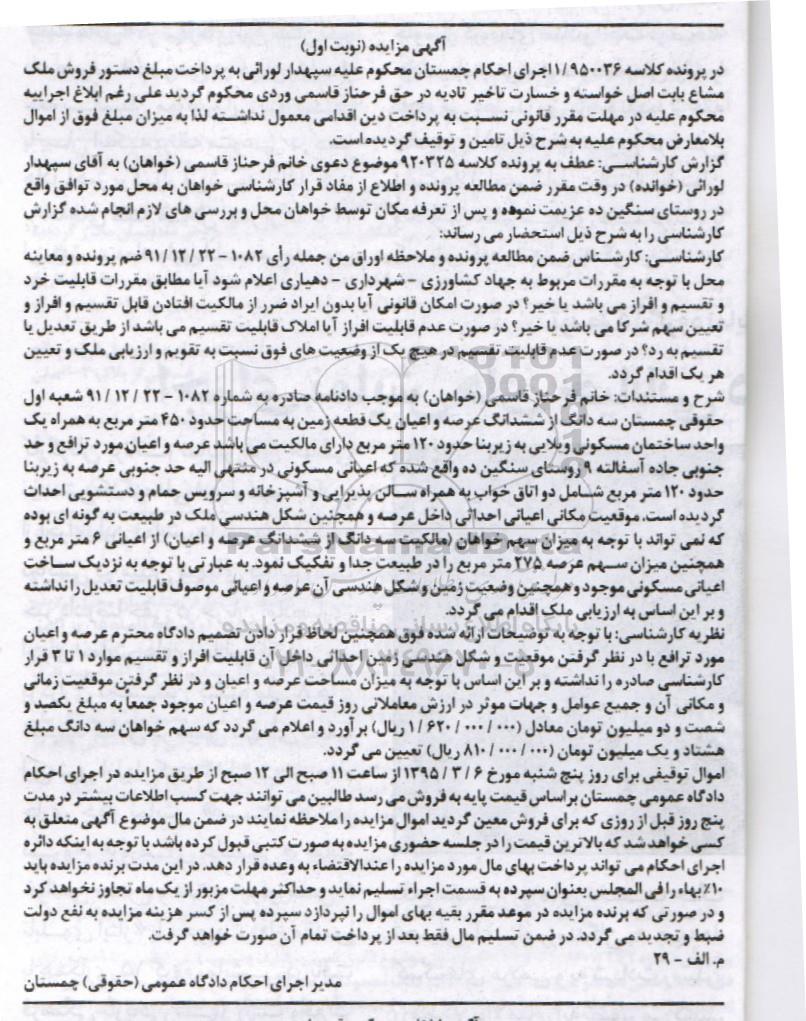 آگهی مزایده (نوبت اول)
در پرونده کلاسه ۱/۹۵۰۰۳۶ اجرای احکام چمستان محکوم علیه سپهدار لورائی به پرداخت مبلغ دستور فروش ملک
مشاع بابت اصل خواسته و خسارت تاخیر تادیه در حق فرحناز قاسمی وردی محکوم گردید علی رغم ابلاغ اجراییه
محکوم علیه در مهلت مقرر قانونی نسبت به پرداخت دین اقدامی معمول نداشته لذا به میزان مبلغ فوق از اموال
بلامعارض محکوم علیه به شرح ذیل تامین و توقیف گردیده است.
گزارش کارشناسی: عطف به پرونده کلاسه ۹۲۰۳۲۵ موضوع دعوی خانم فرحناز قاسمی (خواهان) به آقای سپهدار
لورائی (خوانده) در وقت مقرر ضمن مطالعه پرونده و اطلاع از مفاد قرار کارشناسی خواهان به محل مورد توافق واقع
در روستای سنگین ده عزیمت نموده و پس از تعرفه مکان توسط خواهان محل و بررسی های لازم انجام شده گزارش
کارشناسی را به شرح ذیل استحضار می رساند:
کارشناسی: کارشناس ضمن مطالعه پرونده و ملاحظه اوراق من جمله رأی ۱۰۸۲ - ۲۲ / ۱۲ / ۹۱ ضم پرونده و معاینه
محل با توجه به مقررات مربوط به جهاد کشاورزی - شهرداری - دهیاری اعلام شود آیا مطابق مقررات قابلیت خرد
و تقسیم و افراز می باشد یا خیر؟ در صورت امکان قانونی آیا بدون ایراد ضرر از مالکیت افتادن قابل تقسیم و افراز و
تعیین سهم شرکا می باشد یا خیر؟ در صورت عدم قابلیت افراز آیا املاک قابلیت تقسیم می باشد از طریق تعدیل یا
تقسیم به رد؟ در صورت عدم قابلیت تقسیم در هیچ یک از وضعیت های فوق نسبت به تقویم و ارزیابی ملک و تعیین
هر یک اقدام گردد.
شرح و مستندات: خانم فرحناز قاسمی (خواهان) به موجب دادنامه صادره به شماره ۱۰۸۲ - ۲۲ / ۱۲ / ۹۱ شعبه اول
حقوقی چمستان سه دانگ از ششدانگ عرصه و اعیان یک قطعه زمین به مساحت حدود ۴۵۰ متر مربع به همراه یک
واحد ساختمان مسکونی ویلایی به زیربنا حدود ۱۲۰ متر مربع دارای مالکیت می باشد عرصه و اعیان مورد ترافع و حد
جنوبی جاده آسفالته ۹ روستای سنگین ده واقع شده که اعیانی مسکونی در منتهی الیه حد جنوبی عرصه به زیربنا
حدود ۱۲۰ متر مربع شامل دو اتاق خواب به همراه سالن پذیرایی و آشپزخانه و سرویس حمام و دستشویی احداث
گردیده است. موقعیت مکانی اعیانی احداثی داخل عرصه و همچنین شکل هندسی ملک در طبیعت به گونه ای بوده
که نمی تواند با توجه به میزان سهم خواهان (مالکیت سه دانگ از ششدانگ عرصه و اعیان) از اعیانی ۶ متر مربع و
همچنین میزان سهم عرصه ۲۷۵ متر مربع را در طبیعت جدا و تفکیک نمود. به عبارتی با توجه به نزدیک ساخت
اعیانی مسکونی موجود و همچنین وضعیت زمین و شکل هندسی آن عرصه و اعیانی موصوف قابلیت تعدیل را نداشته
و بر این اساس به ارزیابی ملک اقدام می گردد.
نظریه کارشناسی: با توجه به توضیحات ارائه شده فوق همچنین لحاظ قرار دادن تصمیم دادگاه محترم عرصه و اعیان
مورد ترافع با در نظر گرفتن موقعیت و شکل هندسی زمین احداثی داخل آن قابلیت افراز و تقسیم موارد ۱ تا ۳ قرار
کارشناسی صادره را نداشته و بر این اساس با توجه به میزان مساحت عرصه و اعیان و در نظر گرفتن موقعیت زمانی
و مکانی آن و جمیع عوامل و جهات موثر در ارزش معاملاتی روز قیمت عرصه و اعیان موجود جمعاً به مبلغ یکصد و
شصت و دو میلیون تومان معادل (۰۰۰ / ۰۰۰ / ۶۲۰ / ۱ ریال) برآورد و اعلام می گردد که سهم خواهان سه دانگ مبلغ
هشتاد و یک میلیون تومان (۰۰۰ / ۰۰۰ / ۸۱۰ ریال) تعیین می گردد.
اموال توقیفی برای روز پنج شنبه مورخ ۶ / ۳ / ۱۳۹۵ از ساعت ۱۱ صبح الی ۱۲ صبح از طریق مزایده در اجرای احکام
دادگاه عمومی چمستان براساس قیمت پایه به فروش می رسد طالبین می توانند جهت کسب اطلاعات بیشتر در مدت
پنج روز قبل از روزی که برای فروش معین گردید اموال مزایده را ملاحظه نمایند در ضمن مال موضوع آگهی متعلق به
کسی خواهد شد که بالاترین قیمت را در جلسه حضوری مزایده به صورت کتبی قبول کرده باشد با توجه به اینکه دائره
اجرای احکام می تواند پرداخت بهای مال مورد مزایده را عندالاقتضاء به وعده قرار دهد. در این مدت برنده مزایده باید
۱۰٪ بهاء را فی المجلس بعنوان سپرده به قسمت اجراء تسلیم نماید و حداکثر مهلت مزبور از یک ماه تجاوز نخواهد کرد
و در صورتی که برنده مزایده در موعد مقرر بقیه بهای اموال را نپردازد سپرده پس از کسر هزینه مزایده به نفع دولت
ضبط و تجدید می گردد. در ضمن تسلیم مال فقط بعد از پرداخت تمام آن صورت خواهد گرفت.
م. الف - ۲۹
مدیر اجرای احکام دادگاه عمومی (حقوقی) چمستان
ParsNamadData